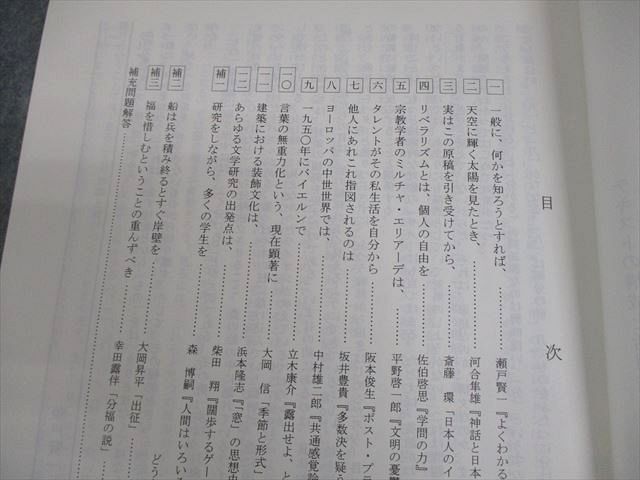 目次
一 一般に、何かを知ろうとすれば、……………瀬戸賢一『よくわかる
二 天空に輝く太陽を見たとき、……………河合隼雄『神話と日本
三 実はこの原稿を引き受けてから、……………斎藤 環「日本人のイ
四 リベラリズムとは、個人の自由を……………佐伯啓思『学問の力』
五 宗教学者のミルチャ・エリアーデは、……………平野啓一郎『文明の憂鬱
六 タレントがその私生活を自分から……………阪本俊生『ポスト・プラ
七 他人にあれこれ指図されるのは……………坂井豊貴『多数決を疑
八 ヨーロッパの中世世界では、……………中村雄二郎『共通感覚論
九 一九五〇年にバイエルンで……………立木康介『露出せよ、と
一〇 言葉の無重力化という、現在顕著に……………大岡 信「季節と形式」
一一 建築における装飾文化は、……………浜本隆志『「窓」の思想史
一二 あらゆる文学研究の出発点は、……………柴田 翔『闊歩するゲー
補一 研究をしながら、多くの学生を……………森 博嗣『人間はいろい
どう
補二 船は兵を積み終るとすぐ岸壁を……………大岡昇平「出征」
補三 福を惜しむということの重んずべき……………幸田露伴「分福の説」
補充問題解答……………